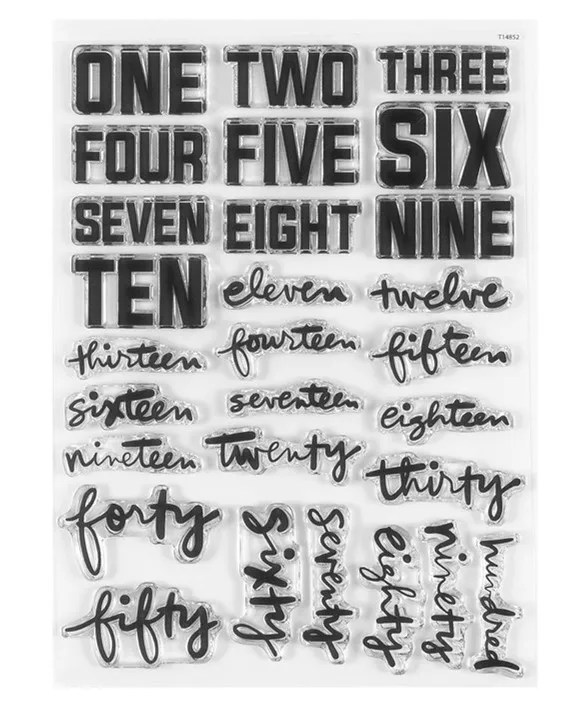 T14852
ONE TWO THREE
FOUR FIVE SIX
SEVEN EIGHT NINE
TEN eleven twelve
thirteen fourteen fifteen
sixteen seventeen eighteen
nineteen twenty thirty
forty
fifty
sixty
seventy
eighty
ninety
hundred